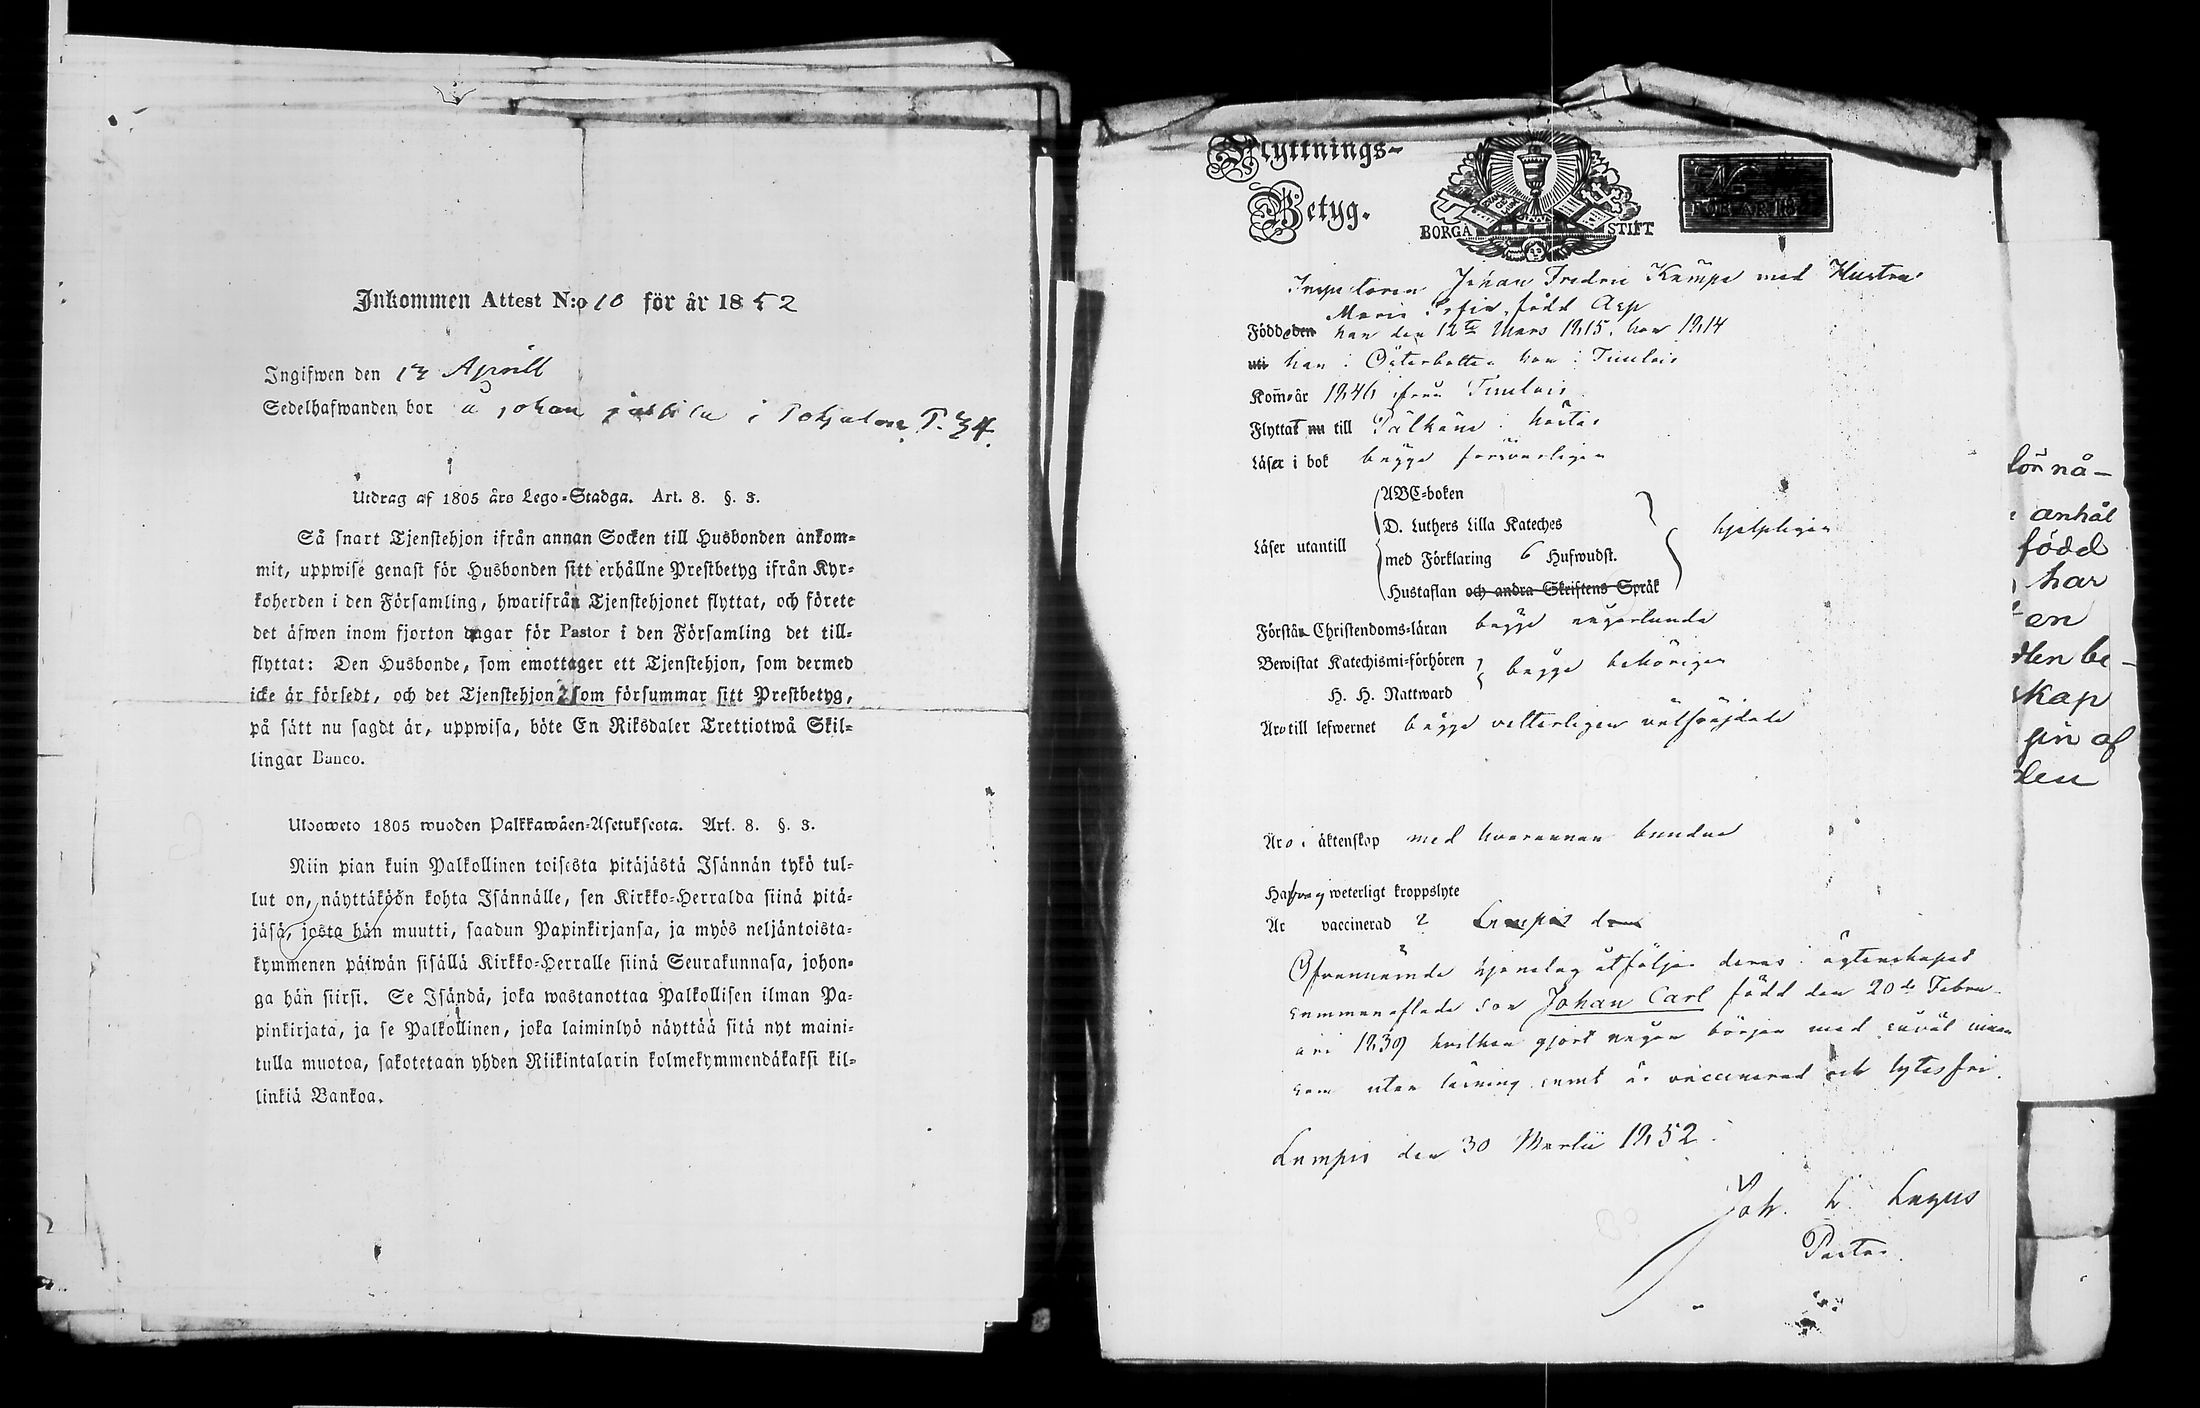 Inkommen Attest N:o 10 för år 1852
Ingifwen den 13 Aprill
Sedelhafwanden bor å Johan i Pohjalan P. 34.
Utdrag af 1805 års Lego-Stadga. Art. 8. §. 3.
Så snart Tjenstehjon ifrån annan Socken till Husbonden ankom-
mit, uppwise genast för Husbonden sitt erhållne Prestbetyg ifrån Kyr-
koherden i den Församling, hwarifrån Tjenstehjonet flyttat, och förete
det äfwen inom fjorton dagar för Pastor i den Församling det till-
flyttat: Den Husbonde, som emottager ett Tjenstehjon, som dermed
icke är försedt, och det Tjenstehjon som försummar sitt Prestbetyg,
på sätt nu sagdt är, uppwisa, böte En Riksdaler Trettiotwå Skil-
lingar Banco.
Ulosweto 1805 wuoden Palkkawäen-Asetuksesta. Art. 8. §. 3.
Niin pian kuin Palkollinen toisesta pitäjästä Isännän tykö tul-
lut on, näyttäköön kohta Isännälle, sen Kirkko-Herralda siinä pitä-
jäsä, josta hän muutti, saadun Papinkirjansa, ja myös neljäntoista-
kymmenen päiwän sisällä Kirkko-Herralle siinä Seurakunnasa, johon-
ga hän siirsi. Se Isändä, joka wastanottaa Palkollisen ilman Pa-
pinkirjata, ja se Palkollinen, joka laiminlyö näyttää sitä nyt maini-
tulla muotoa, sakotetaan yhden Riikintalarin kolmekymmendäkaksi kil-
linkiä Bankoa.
Flyttnings-
Betyg.
BORGÅ STIFT
FÖR ÅR 18
Inspectoren Johan Fredric Kämpe med Hustru
Maria Sofia, född Asp
Födde den han den 12te Mars 1815, hon 1814
uti han i Österbotten hon i Tuulois
Kom år 1846 från Tuulois
Flyttat nu till Pälkäne
Läser i bok bägge försvarligen
Läser utantill
ABC-boken
D. Luthers Lilla Kateches
med Förklaring 6 Hufwudst.
Hustaflan och andra Skriftens Språk
hjelpligen
Förstå Christendoms-läran bägge någorlunda
Bewistat Katechismi-förhören
H. H. Nattward
bägge behörigen
Äro till lefwernet bägge vetterligen välfräjdade
Äro i äktenskap med hvarannan bundne
Hafva ej weterligt kroppslyte
Är vaccinerad ? Lampis den
Ofvannämde hjonelag åtföljer deras i ägtenskapet
sammanaflade son Johan Carl född den 20de Febru-
ari 1839 hvilken gjort någon början med såväl innan
som utan läsning samt är vaccinerad och lytesfri.
Lampis den 30 Martii 1852.
Joh. H. Lagus
Pastor.
för nå-
anhål
född
har
en
den be-
skap
gin af
den